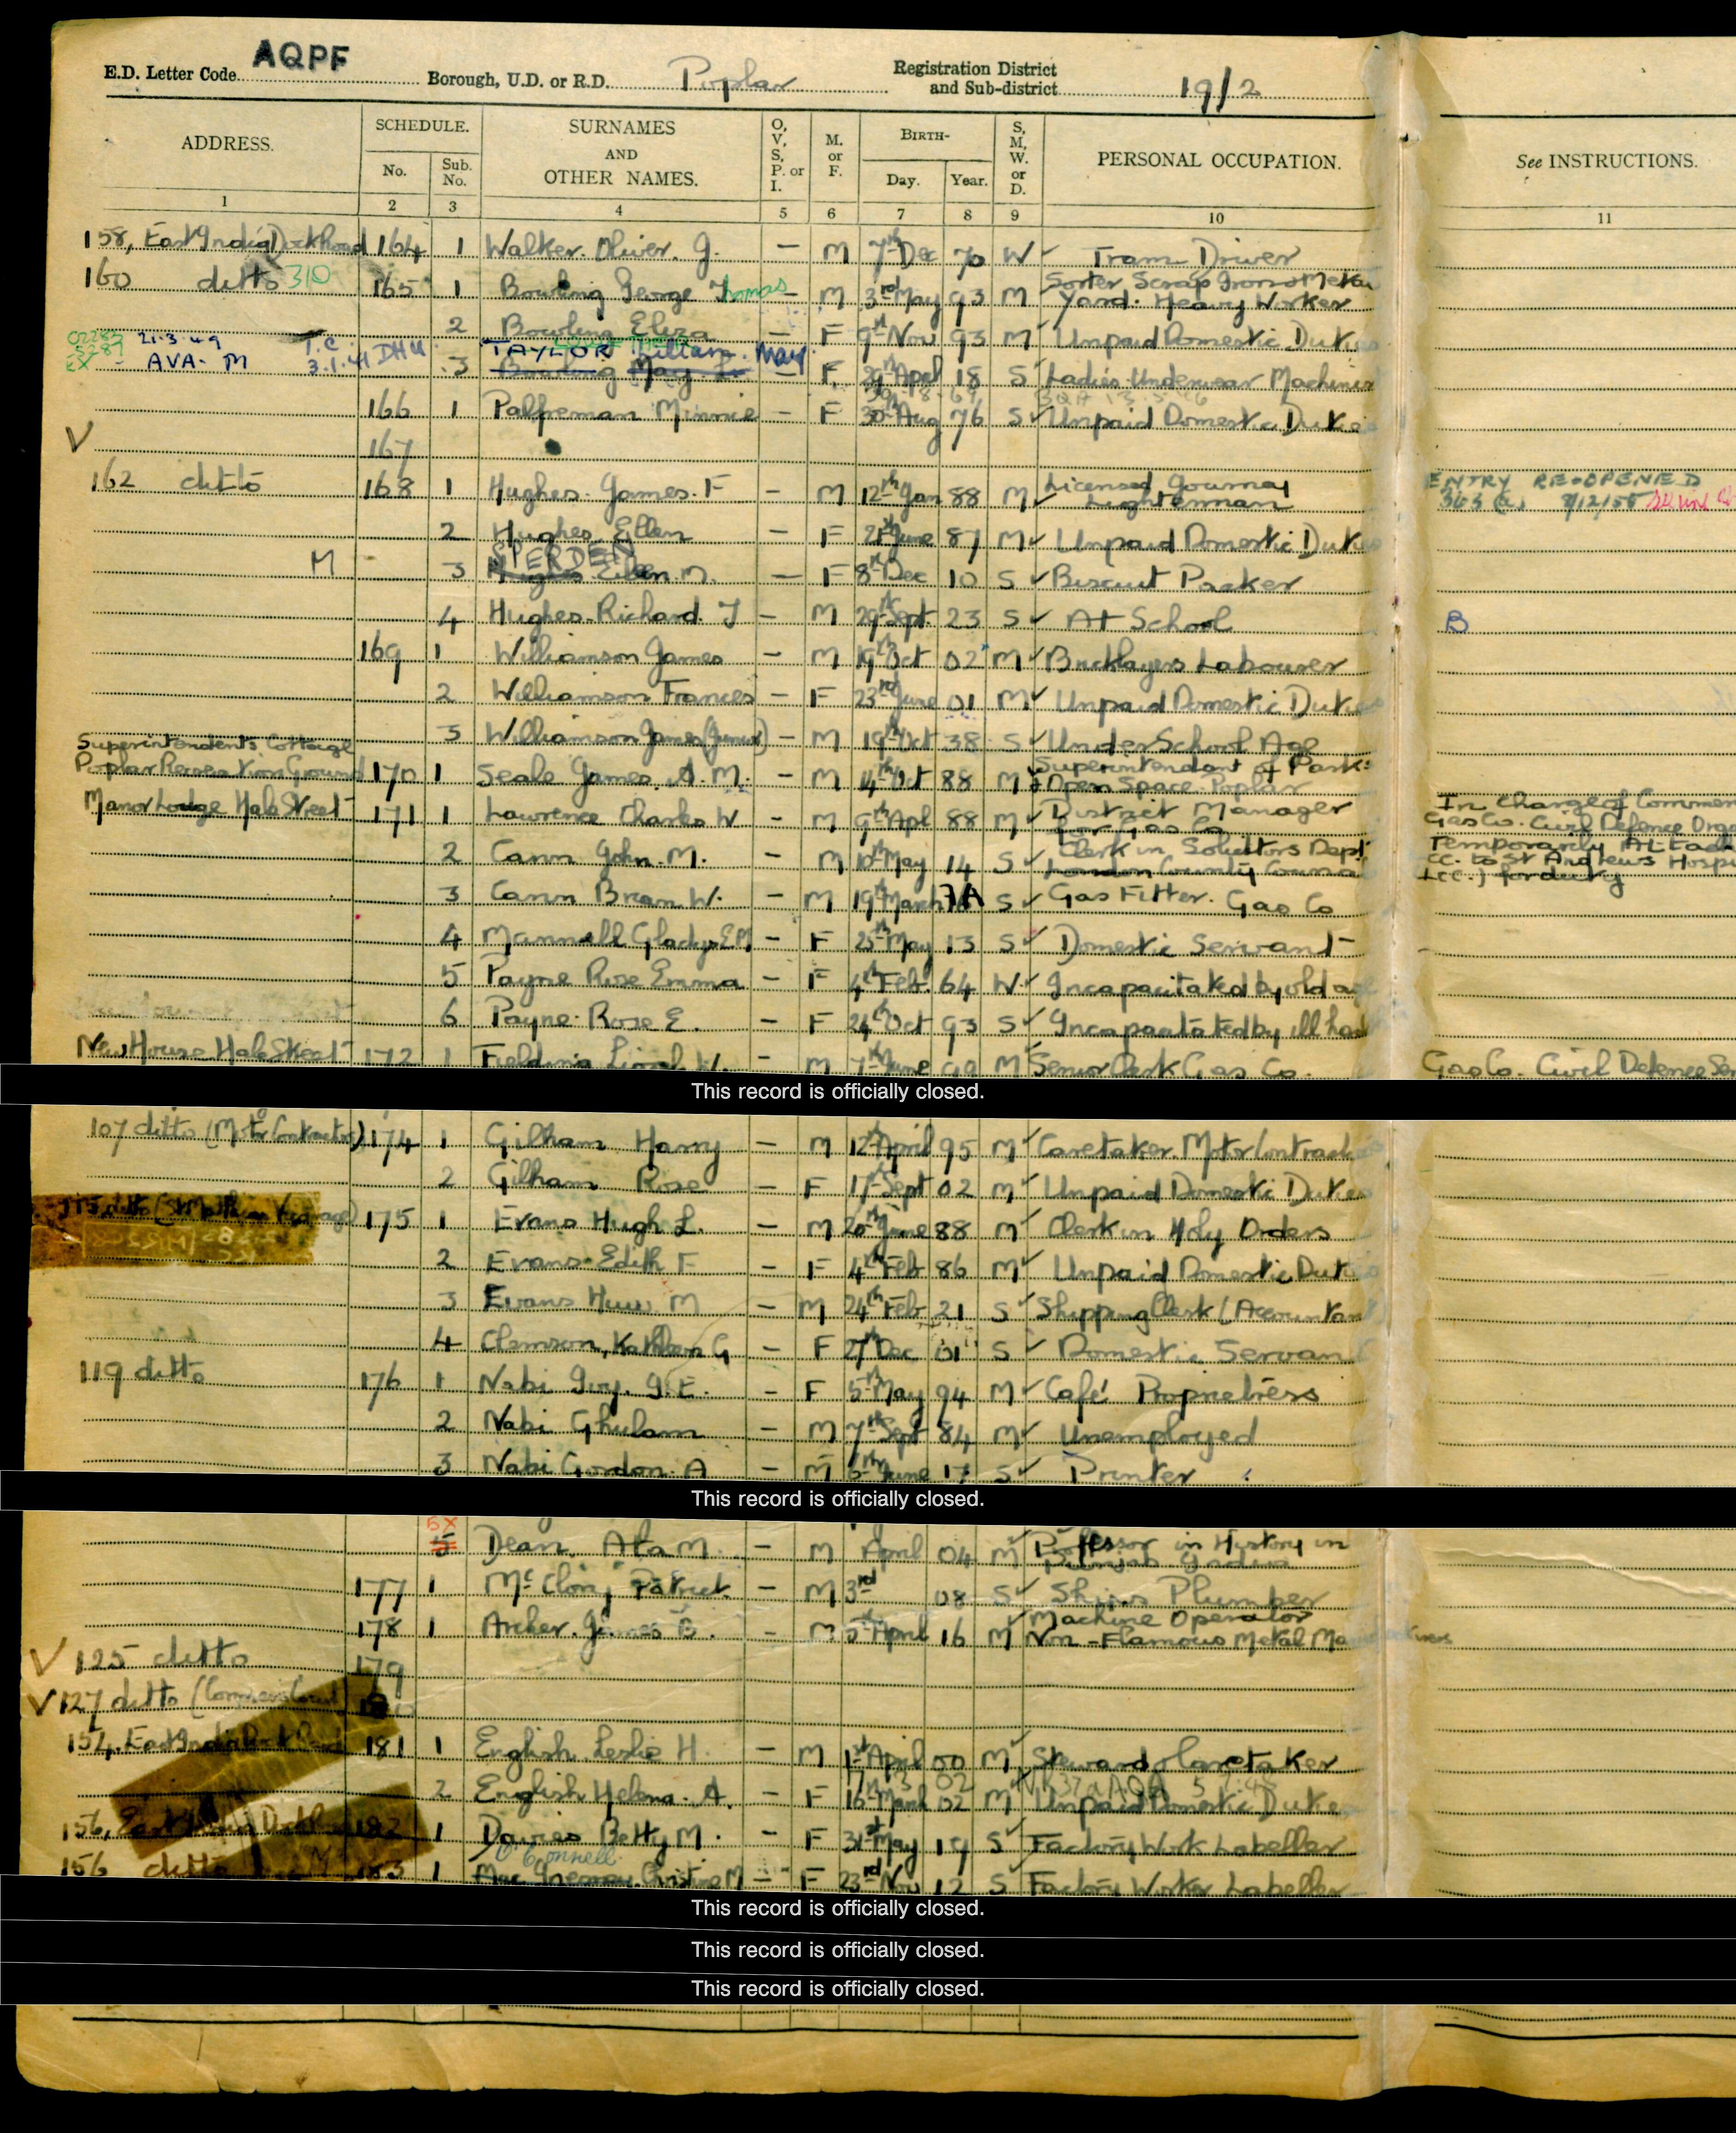 AQPF
E.D. Letter Code Borough, U.D. or R.D. Poplar Registration District and Sub-district 19/2
ADDRESS. SCHEDULE. No. Sub. No. SURNAMES AND OTHER NAMES. O, V, S, P. or I. M. or F. BIRTH- Day. Year. S, M, W. or D. PERSONAL OCCUPATION. See INSTRUCTIONS.
1 2 3 4 5 6 7 8 9 10 11
158, East India Dock Road 164 1 Walker. Oliver. G. – M 7th Dec 70 W Tram Driver
160 ditto 310 165 1 Bowling George Thomas – M 3rd May 93 M Sorter Scrap Iron & Metal Yard. Heavy Worker
2 Bowling Eliza – F 9th Nov 93 M Unpaid Domestic Duties
21.3.49 AVA. M T.C. 3.1.41 DHU 3 TAYLOR Lillian. May Bowling May L. – F 29th April 18 S Ladies Underwear Machinist
166 1 Palfreman Minnie – F 30th Aug 76 S Unpaid Domestic Duties
V 167
162 ditto 168 1 Hughes. James. F – M 12th Jan 88 M Licensed Journey Lighterman ENTRY RE-OPENED 363 8/12/55
2 Hughes. Ellen – F 21st June 87 M Unpaid Domestic Duties
M 3 SPERDEN Hughes Ellen. M. – F 8th Dec 10 S Biscuit Packer
4 Hughes. Richard. J – M 29th Sept. 23 S At School B
169 1 Williamson James – M 19th Oct 02 M Bricklayers Labourer
2 Williamson Frances – F 23rd June 01 M Unpaid Domestic Duties
3 Williamson James (Junior) – M 19th Oct 38 S Under School Age
Superintendents Cottage Poplar Recreation Ground 170 1 Seale James. A. M. – M 14th Oct 88 M Superintendent of Parks & Open Space Poplar
Manor Lodge Hale Street 171 1 Lawrence Charles W – M 9th Apl 88 M District Manager for Gas Co In Charge of Commer Gas Co. Civil Defence Orga
2 Cann John. M. – M 10th May 14 S Clerk in Solicitors Dept London County Council Temporarily Attach CC. to St Andrews Hospi LCC.) for duty
3 Cann Brian W. – M 19th March 7A S Gas Fitter. Gas Co
4 Mannell Gladys E M – F 25th May 13 S Domestic Servant
5 Payne Rose Emma – F 4th Feb. 64 W Incapacitated by old age
6 Payne Rose E. – F 24th Oct 93 S Incapacitated by ill hea
New House Hale Street 172 1 Fielding Lionel W. – M 7th June 99 M Senior Clerk Gas Co. Gas Co. Civil Defence Ser
This record is officially closed.
107 ditto (Motor Contractor) 174 1 Gilham Harry – M 12th April 95 M Caretaker Motor Contract
2 Gilham Rose – F 17th Sept 02 M Unpaid Domestic Duties
115 ditto (St Mathias Vicarage) 175 1 Evans Hugh L. – M 20th June 88 M Clerk in Holy Orders
2 Evans Edith F – F 4th Feb 86 M Unpaid Domestic Duties
3 Evans Huw M – M 24th Feb 21 S Shipping Clerk (Accountan
4 Clemson, Kathleen G – F 27th Dec 01 S Domestic Servant
119 ditto 176 1 Nabi Ivy. I. E. – F 5th May 94 M Café Proprietress
2 Nabi Ghulam – M 7th Sept 84 M Unemployed
3 Nabi Gordon. A – M 6th June 17 S Printer
This record is officially closed.
5X 5 Dean. Ata M. – M April 04 M Professor in History in Punjab India
177 1 McCloy Patrick – M 3rd 08 S Ships Plumber
178 1 Archer. James B. – M 5th April 16 M Machine Operator Non-Flamous Metal Ma
V 125 ditto 179
V 127 ditto 180
154, East India Dock Road 181 1 English. Leslie H. – M 1st April 00 M Steward & Caretaker
2 English Helena. A. – F 16th March 02 M Unpaid Domestic Duties
156, East India Dock 182 1 Davies Betty M. – F 31st May 19 S Factory Work Labeller
156 ditto 183 1 O'Connell Christina M – F 23rd Nov 12 S Factory Worker Labeller
This record is officially closed.
This record is officially closed.
This record is officially closed.